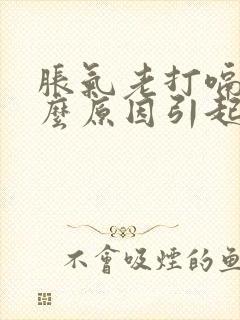 脹氣老打嗝
麼原因引起
不會吸煙的魚